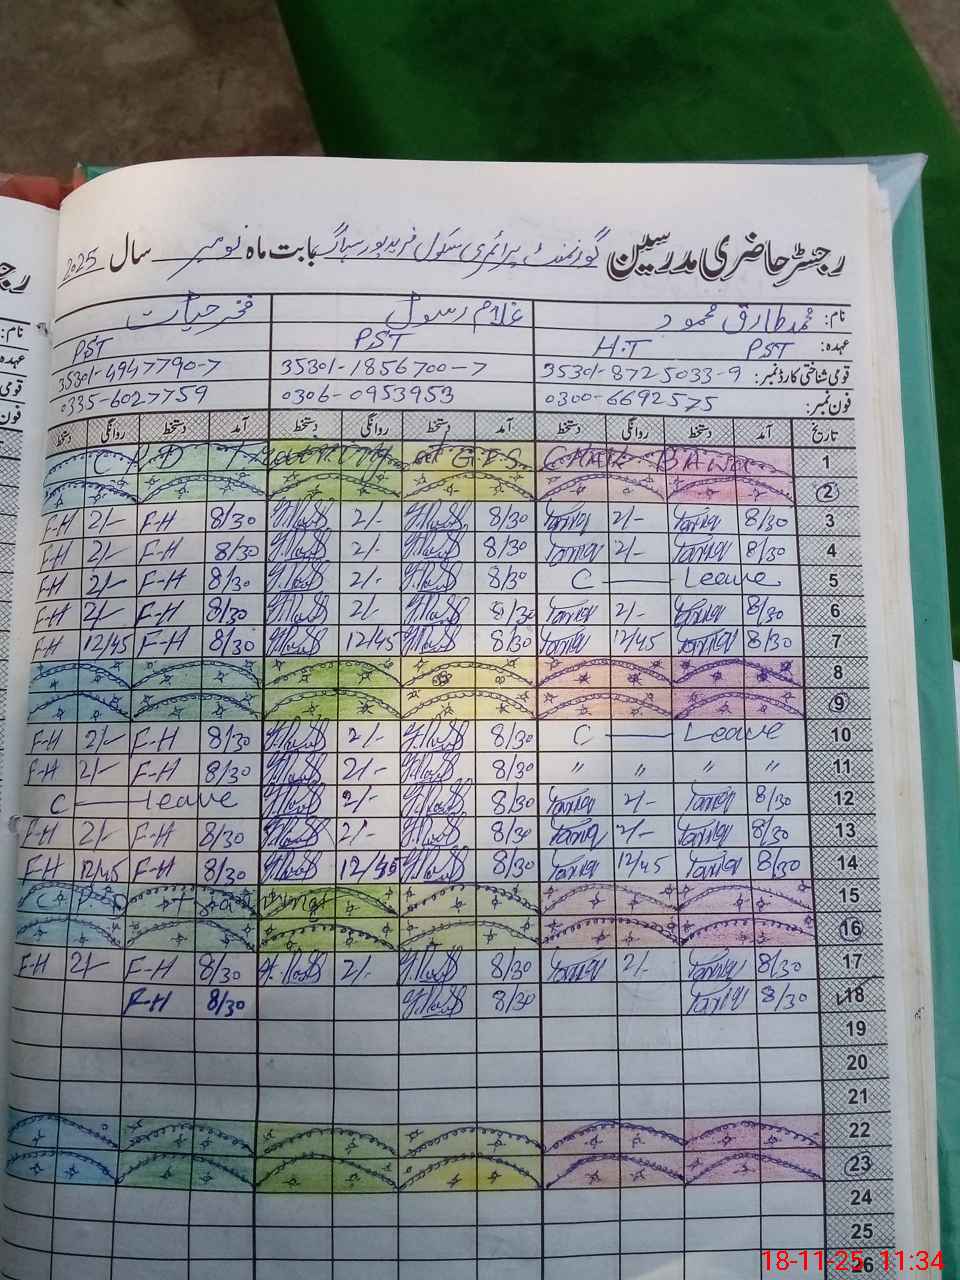 رجسٹر حاضری مدرسین گورنمنٹ پرائمری سکول فرید پور سہاگ بابت ماہ نومبر سال 2025
نام: محمد طارق محمود غلام رسول فخر حیات
عہدہ: PST H.T PST PST
قومی شناختی کارڈ نمبر: 35301-8725033-9 35301-1856700-7 35301-4947790-7
فون نمبر: 0300-6692575 0306-0953953 0335-6027759
تاریخ آمد دستخط روانگی دستخط آمد دستخط روانگی دستخط آمد دستخط روانگی دستخط
CPD at GES CHAK 1
2
F-H 2/- F-H 8/30 2/- 8/30 Tariq 2/- Tariq 8/30 3
F-H 2/- F-H 8/30 2/- 8/30 Tariq 2/- Tariq 8/30 4
F-H 2/- F-H 8/30 2/- 8/30 C — Leave 5
F-H 2/- F-H 8/30 2/- 8/30 Tariq 2/- Tariq 8/30 6
F-H 12/45 F-H 8/30 12/45 8/30 Tariq 12/45 Tariq 8/30 7
8
9
F-H 2/- F-H 8/30 2/- 8/30 C — Leave 10
F-H 2/- F-H 8/30 2/- 8/30 " " " " 11
C — leave 2/- 8/30 Tariq 2/- Tariq 8/30 12
F-H 2/- F-H 8/30 2/- 8/30 Tariq 2/- Tariq 8/30 13
F-H 12/45 F-H 8/30 12/45 8/30 Tariq 12/45 Tariq 8/30 14
CPD 15
16
F-H 2/- F-H 8/30 2/- 8/30 Tariq 2/- Tariq 8/30 17
F-H 8/30 8/30 Tariq 8/30 18
19
20
21
22
23
24
25
26
18-11-25 11:34